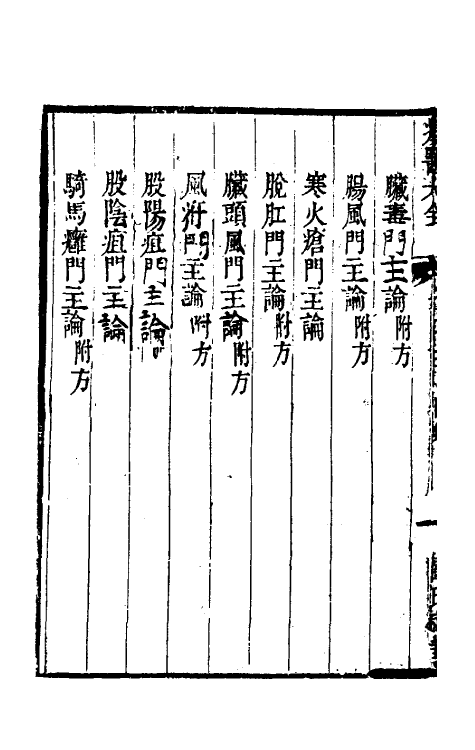 臟毒門主論附方
腸風門主論附方
寒火瘡門主論
脫肛門主論附方
臟頭風門主論附方
風疳門主論附方
股陽疽門主論
股陰疽門主論
騎馬癰門主論附方